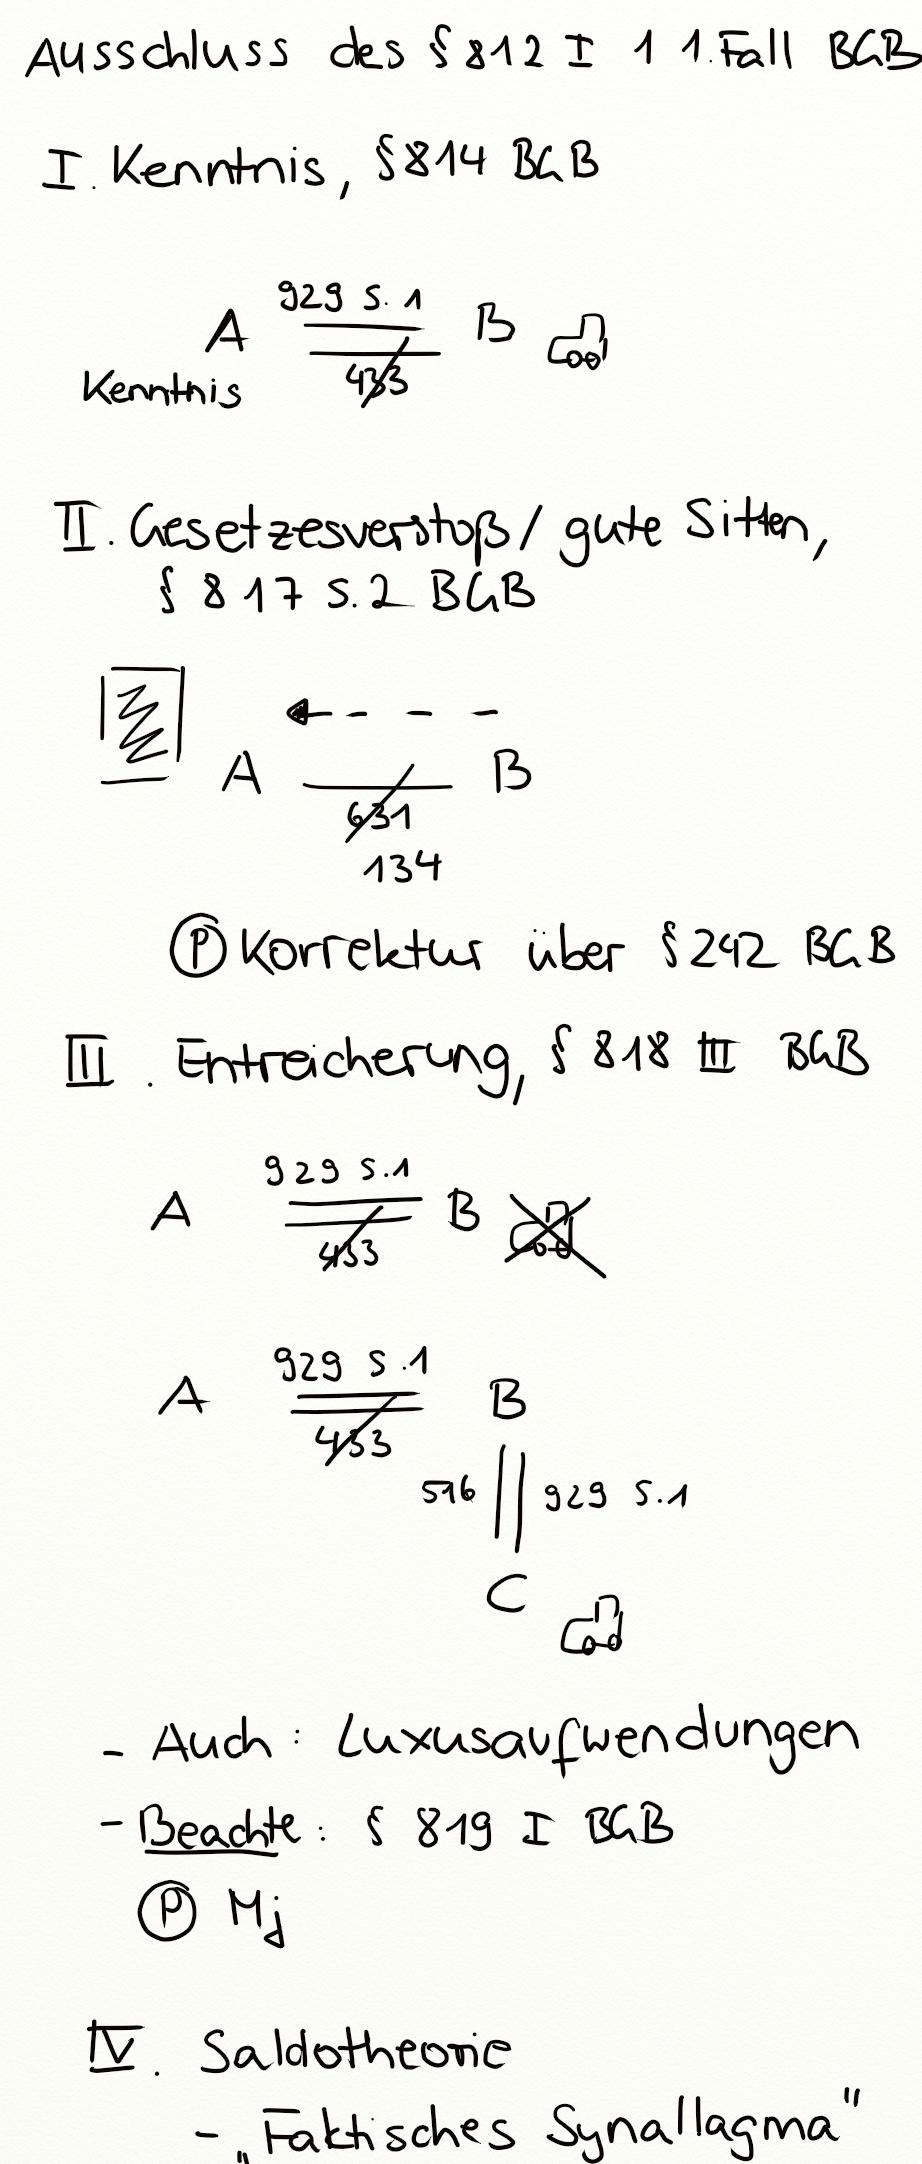 Ausschluss des § 812 I 1 1. Fall BGB
I. Kenntnis, § 814 BGB
929 S. 1
A B
433
Kenntnis
II. Gesetzesverstoß / gute Sitten,
§ 817 S. 2 BGB
A B
631
134
Ⓟ Korrektur über § 242 BGB
III. Entreicherung, § 818 III BGB
929 S. 1
A B
433
929 S. 1
A B
433
516 929 S. 1
C
- Auch: Luxusaufwendungen
- Beachte: § 819 I BGB
Ⓟ Mj
IV. Saldotheorie
- „Faktisches Synallagma"